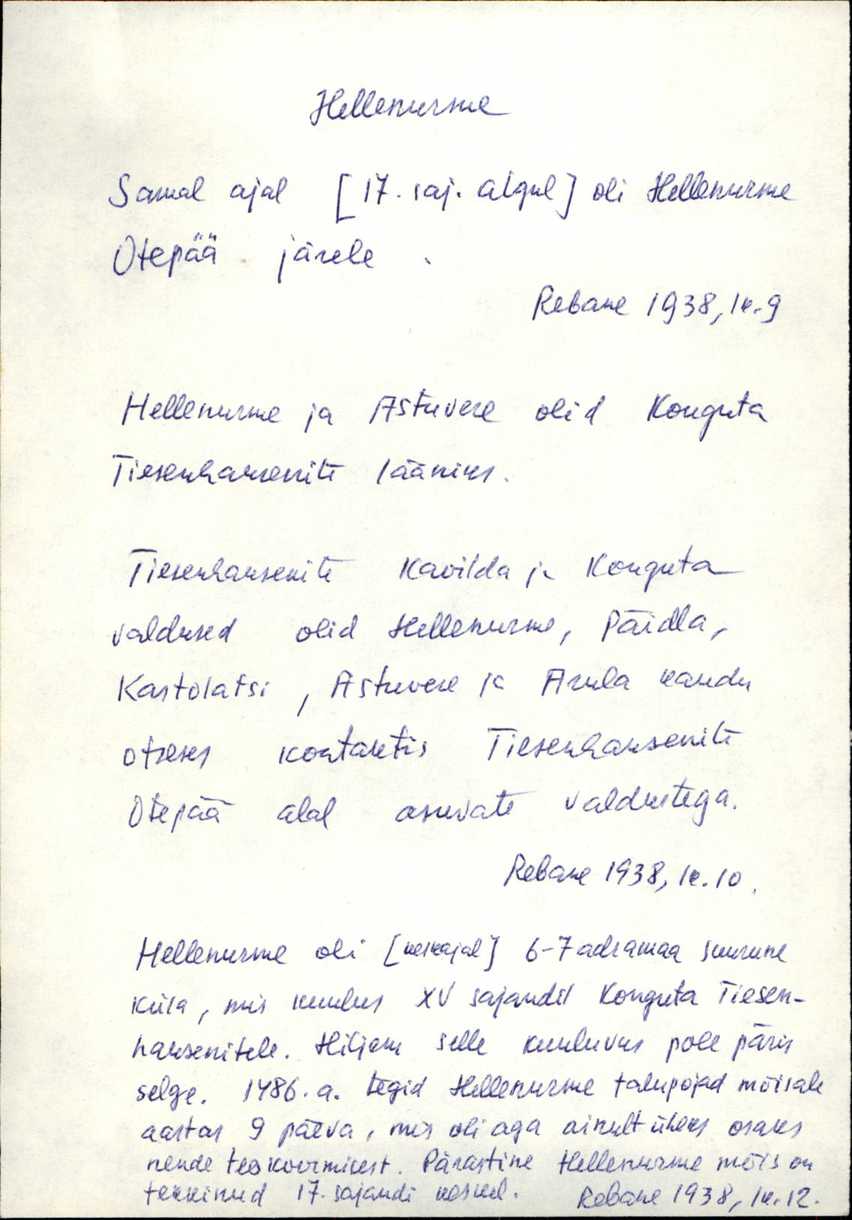 Hellenurme
Samal ajal [17. saj. algul] oli Hellenurme
Otepää järele.
Rebane 1938, lk. 9
Hellenurme ja Astuvere olid Konguta
Tiesenhausenite lääniks.
Tiesenhausenite Kavilda ja Konguta
valdused olid Hellenurme, Päidla,
Kastolatsi, Astuvere ja Arula kaudu
otseses kontaktis Tiesenhausenite
Otepää alal asuvate valdustega.
Rebane 1938, lk. 10.
Hellenurme oli [keskajal] 6-7 adramaa suurune
küla, mis kuulus XV sajandil Konguta Tiesen-
hausenitele. Hiljem selle kuuluvus pole päris
selge. 1486. a. tegid Hellenurme talupojad mõisale
aastas 9 päeva, mis oli aga ainult üheks osaks
nende teokoormisest. Pärastine Hellenurme mõis on
tekkinud 17. sajandi keskel. Rebane 1938, lk. 12.